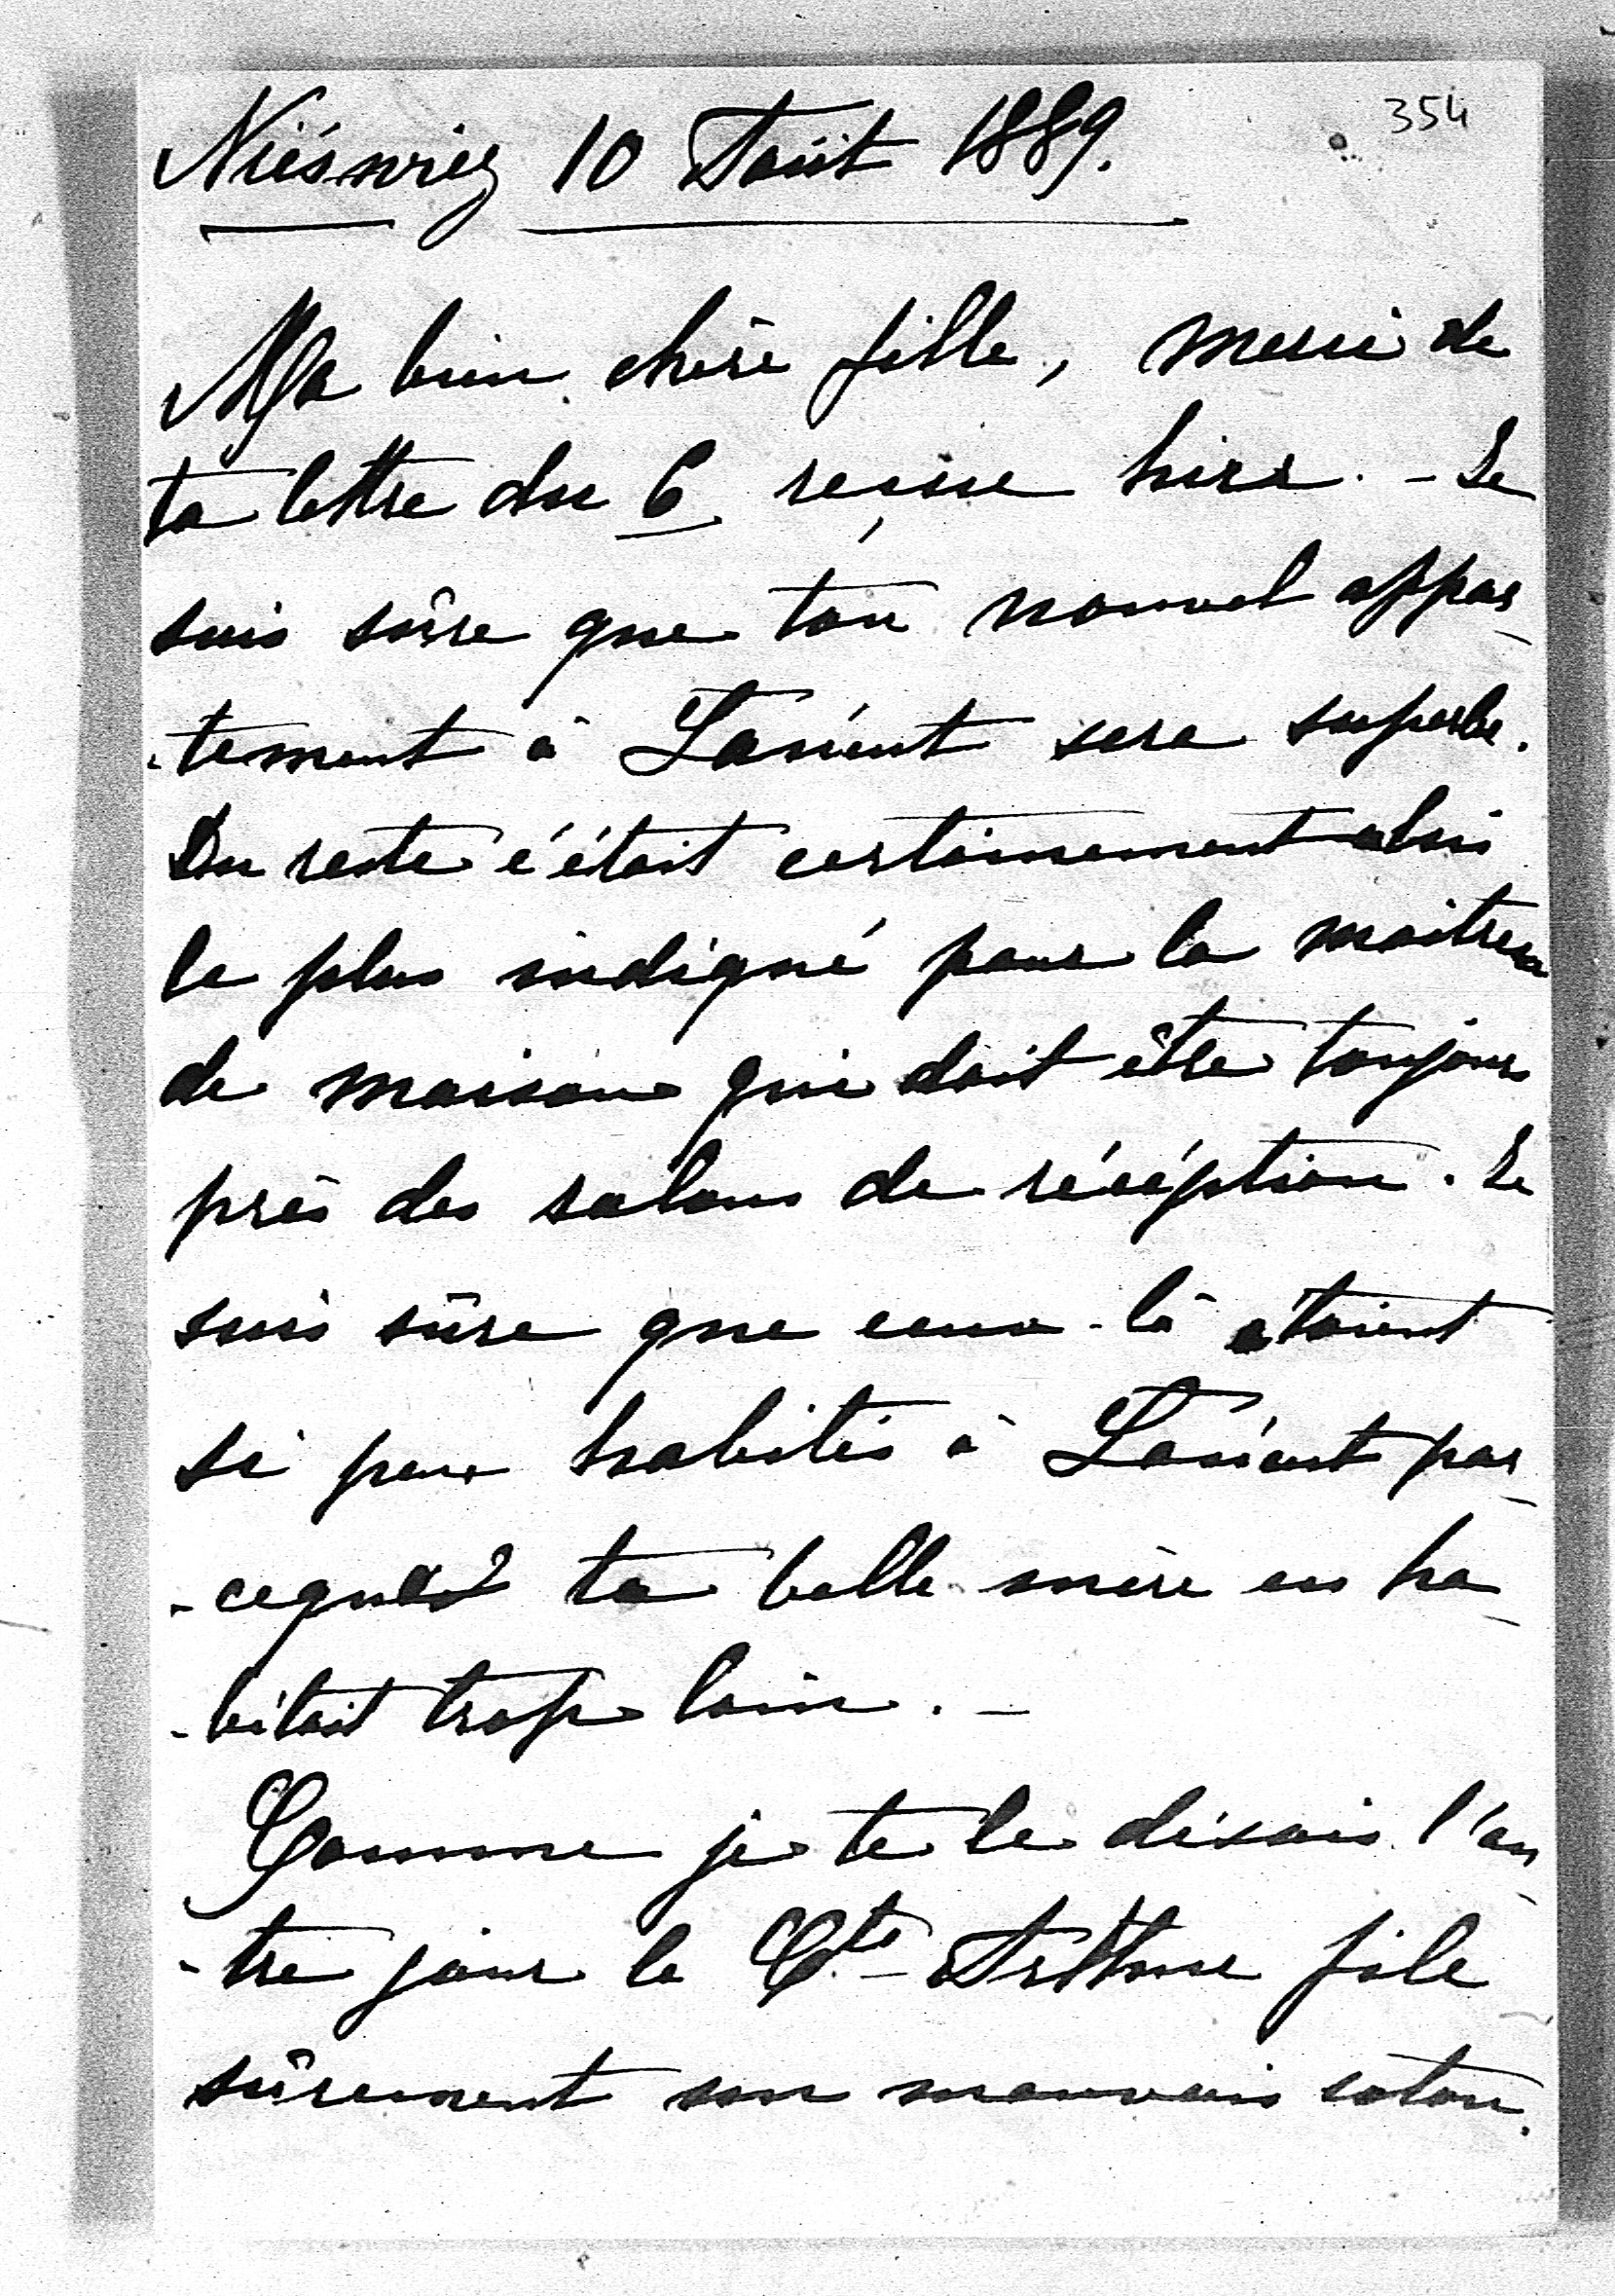 354
Niéswiez 10 Août 1889.
Ma bien chère fille, merci de
ta lettre du 6 reçue hier. - Je
suis sûre que ton nouvel appar-
-tement à Lancut sera superbe.
Du reste c'était certainement celui
le plus indiqué pour la maitresse
de maison qui doit être toujours
près des salons de réception. Je
suis sûre que ceux-là étaient
si peu habités à Lancut par-
-ceque ta belle mère en ha-
-bitait trop loin. -
Comme je te le disais l'au-
-tre jour le Cte Arthur file
sûrement son mauvais coton.